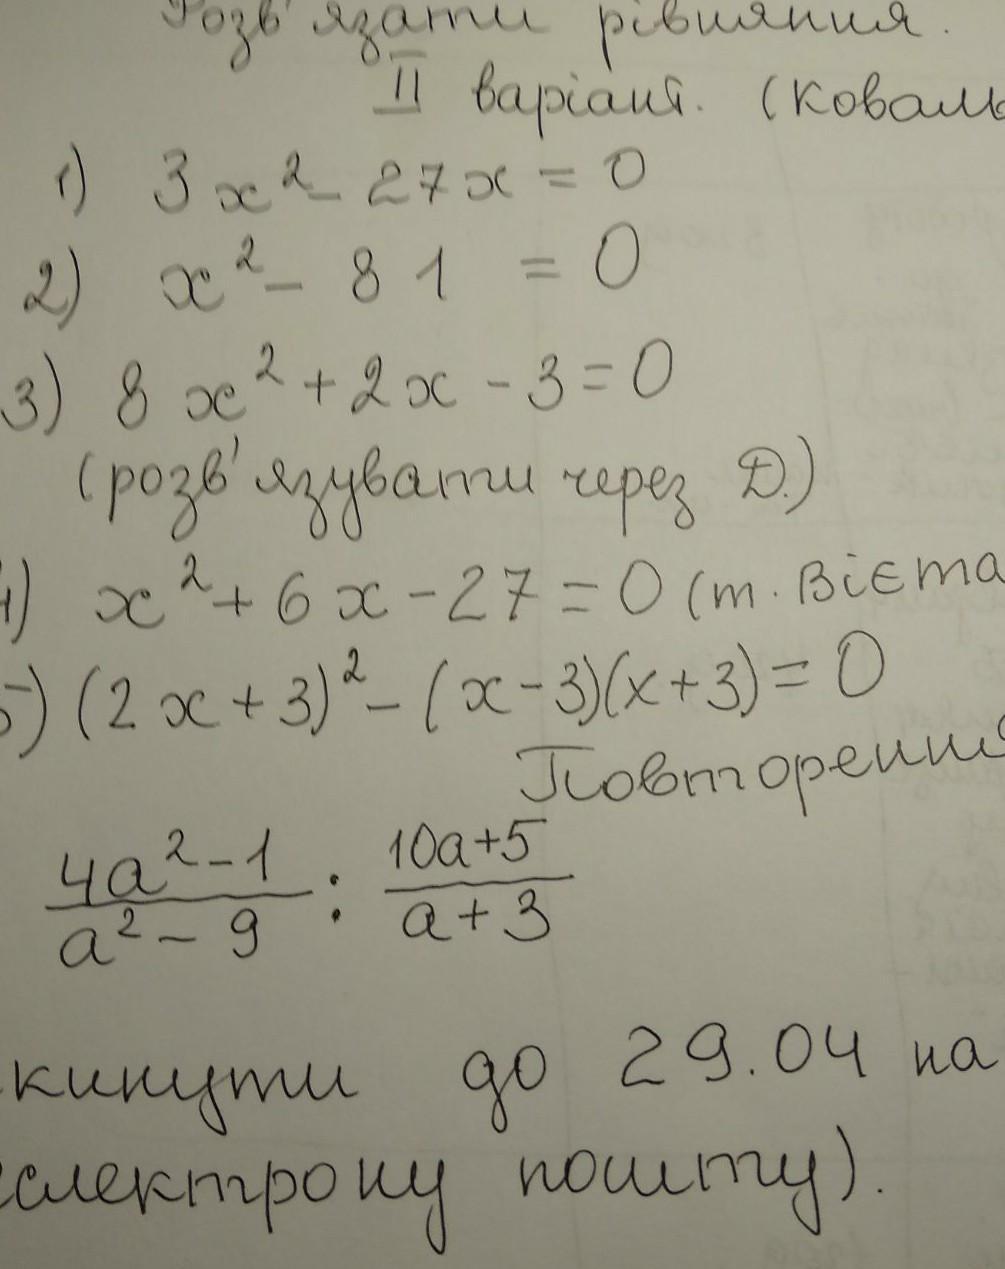 Розв'язати рівняння.
II варіант. (Коваль
1) 3x² - 27x = 0
2) x² - 81 = 0
3) 8x² + 2x - 3 = 0
(розв'язувати через D.)
4) x² + 6x - 27 = 0 (т. Вієта
5) (2x + 3)² - (x - 3)(x + 3) = 0
Повторення
4a² - 1 / a² - 9 : 10a + 5 / a + 3
кинути до 29.04 на
електрону пошту).